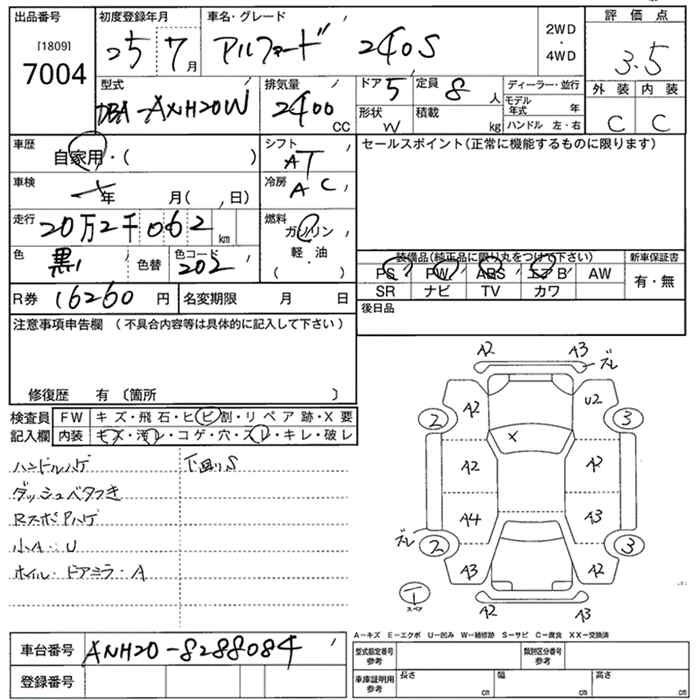 出品番号 初度登録年月 車名・グレード 2WD・4WD 評価点
[1809]
7004 25 7月 アルファード 240S 3.5
型式 排気量 ドア 5 定員 8人 ディーラー・並行 外装 内装
DBA-ANH20W 2400CC 形状 W 積載 kg モデル年式 年 C C
ハンドル 左・右
車歴 シフト セールスポイント(正常に機能するものに限ります)
自家用・( ) AT
車検 年 月( , 日) 冷房 AC
走行 20万2千062km 燃料 ガソリン
軽・油
( )
色 黒 色替 色コード 202
装備品(純正品に限り丸をつけて下さい) 新車保証書
PS PW ABS エアB AW 有・無
SR ナビ TV カワ
R券 16260円 名変期限 月 日 後日品
注意事項申告欄 (不具合内容等は具体的に記入して下さい)
修復歴 有 〔箇所 〕
検査員 FW キズ・飛石・ヒビ割・リペア跡・X要
記入欄 内装 キズ・汚レ・コゲ・穴・スレ・キレ・破レ
ハンドルハゲ 下回りS
ダッシュベタつき
RスポPハゲ
小A・U
ホイル・ドアミラ・A
A2 A3 ズレ
A2 U2
2 3
X
A2 A2
A4 A3
ズレ 2 3
A3 A2
スペア
A2 A3
A−キズ E−エクボ U−凹み W−補修跡 S−サビ C−腐食 XX−交換済
車台番号 ANH20-8288084 型式指定番号 参考 類別区分番号 参考
登録番号 車庫証明用 参考 長さ cm 幅 cm 高さ cm